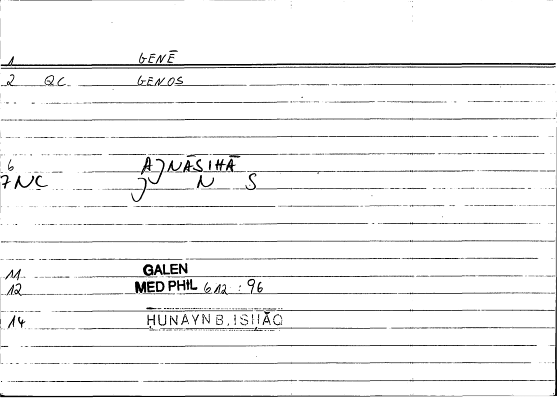 1 GENĒ
2 QC GENOS
6 AJNĀSIHĀ
7 NC J N S
11 GALEN
12 MED PHIL 612 : 96
14 ḤUNAYN B. ISḤĀQ